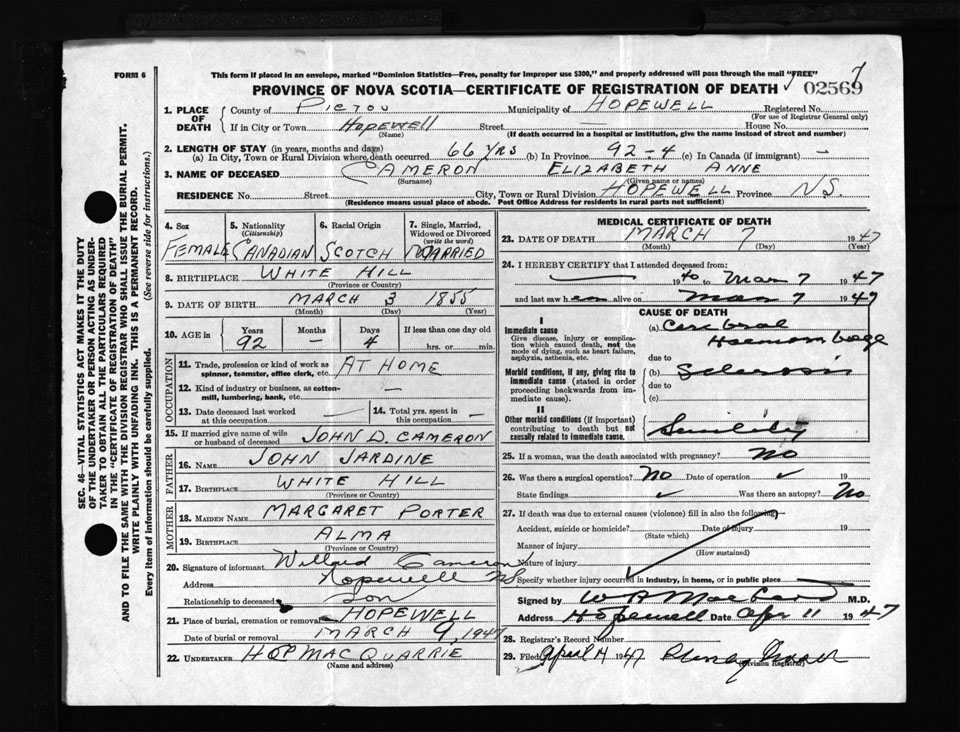 FORM 6
This form if placed in an envelope, marked "Dominion Statistics—Free, penalty for improper use $300," and properly addressed will pass through the mail "FREE"
PROVINCE OF NOVA SCOTIA—CERTIFICATE OF REGISTRATION OF DEATH
7
02569
1. PLACE OF DEATH
County of PICTOU Municipality of HOPEWELL Registered No.
(For use of Registrar General only)
If in City or Town HOPEWELL Street — House No.
(Name) (If death occurred in a hospital or institution, give the name instead of street and number)
2. LENGTH OF STAY (in years, months and days)
(a) In City, Town or Rural Division where death occurred 66 YRS (b) In Province 92-4 (c) In Canada (if immigrant) —
3. NAME OF DECEASED CAMERON ELIZABETH ANNE
(Surname) (Given name or names)
RESIDENCE No. Street City, Town or Rural Division HOPEWELL Province N.S.
(Residence means usual place of abode. Post Office Address for residents in rural parts not sufficient)
4. Sex FEMALE
5. Nationality (Citizenship) CANADIAN
6. Racial Origin SCOTCH
7. Single, Married, Widowed or Divorced (write the word) MARRIED
8. BIRTHPLACE WHITE HILL
(Province or Country)
9. DATE OF BIRTH MARCH 3 1855
(Month) (Day) (Year)
10. AGE in Years 92 Months — Days 4 If less than one day old hrs. or min.
OCCUPATION
11. Trade, profession or kind of work as spinner, teamster, office clerk, etc. AT HOME
12. Kind of industry or business, as cotton-mill, lumbering, bank, etc. —
13. Date deceased last worked at this occupation —
14. Total yrs. spent in this occupation —
15. If married give name of wife or husband of deceased JOHN D. CAMERON
FATHER
16. NAME JOHN JARDINE
17. BIRTHPLACE WHITE HILL
(Province or Country)
MOTHER
18. MAIDEN NAME MARGARET PORTER
19. BIRTHPLACE ALMA
(Province or Country)
20. Signature of informant Willard Cameron
Address Hopewell NS
Relationship to deceased Son
21. Place of burial, cremation or removal HOPEWELL
Date of burial or removal MARCH 9, 1947
22. UNDERTAKER MACQUARRIE
(Name and address)
MEDICAL CERTIFICATE OF DEATH
23. DATE OF DEATH MARCH 7 1947
(Month) (Day) (Year)
24. I HEREBY CERTIFY that I attended deceased from:
1940 to Mar 7 1947
and last saw her alive on Mar 7 1947
CAUSE OF DEATH
I
Immediate cause
Give disease, injury or complication which caused death, not the mode of dying, such as heart failure, asphyxia, asthenia, etc.
(a) Cerebral
Haemorrhage
due to
Morbid conditions, if any, giving rise to immediate cause (stated in order proceeding backwards from immediate cause).
(b) Sclerosis
due to
(c)
II
Other morbid conditions (if important) contributing to death but not causally related to immediate cause.
Senility
25. If a woman, was the death associated with pregnancy? No
26. Was there a surgical operation? No Date of operation ✓ 19
State findings ✓ Was there an autopsy? No
27. If death was due to external causes (violence) fill in also the following—
Accident, suicide or homicide? Date of injury 19
(State which)
Manner of injury
(How sustained)
Nature of injury
Specify whether injury occurred in industry, in home, or in public place
Signed by M.D.
Address Hopewell Date Apr 11 1947
28. Registrar's Record Number
29. Filed April 14 1947
(Division Registrar)
SEC. 46—VITAL STATISTICS ACT MAKES IT THE DUTY
OF THE UNDERTAKER OR PERSON ACTING AS UNDER-
TAKER TO OBTAIN ALL THE PARTICULARS REQUIRED
IN THE "CERTIFICATE OF REGISTRATION OF DEATH"
AND TO FILE THE SAME WITH THE DIVISION REGISTRAR WHO SHALL ISSUE THE BURIAL PERMIT.
WRITE PLAINLY WITH UNFADING INK. THIS IS A PERMANENT RECORD.
Every item of information should be carefully supplied. (See reverse side for instructions.)